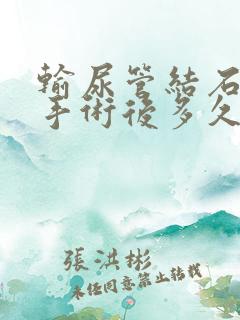 輸尿管結石
手術後多久
張洪彬
未經同意禁止轉載